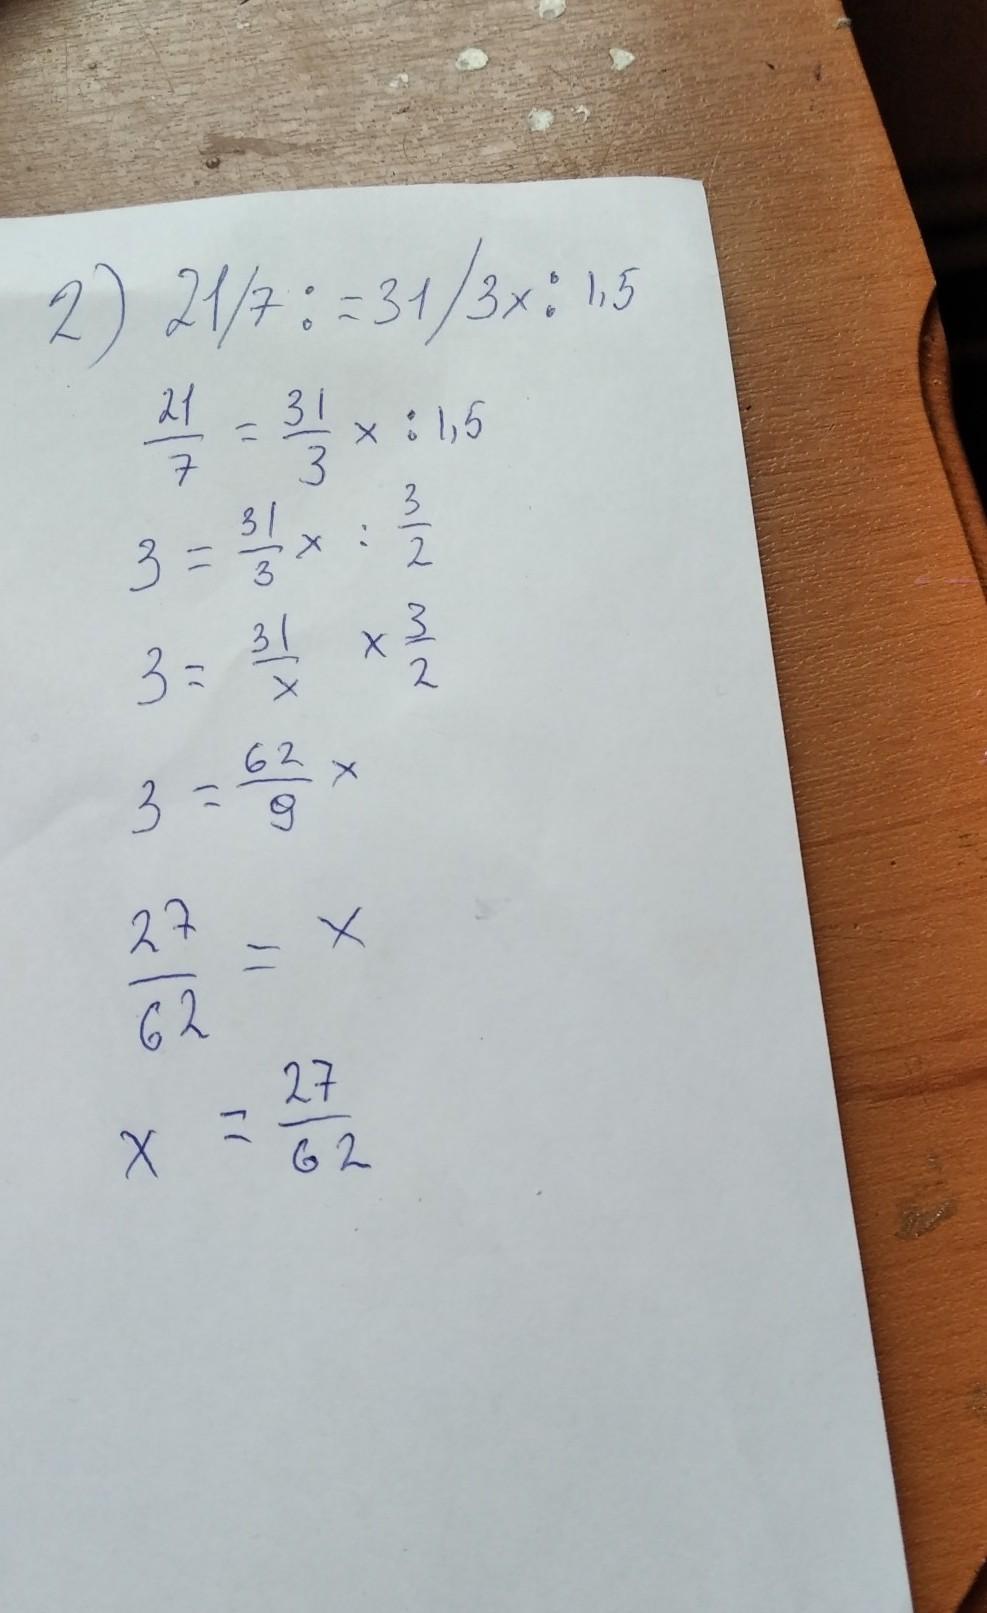 2) 21/7 : = 31/3x : 1,5
21/7 = 31/3 x : 1,5
3 = 31/3 x : 3/2
3 = 31/x × 3/2
3 = 62/9 x
27/62 = x
x = 27/62